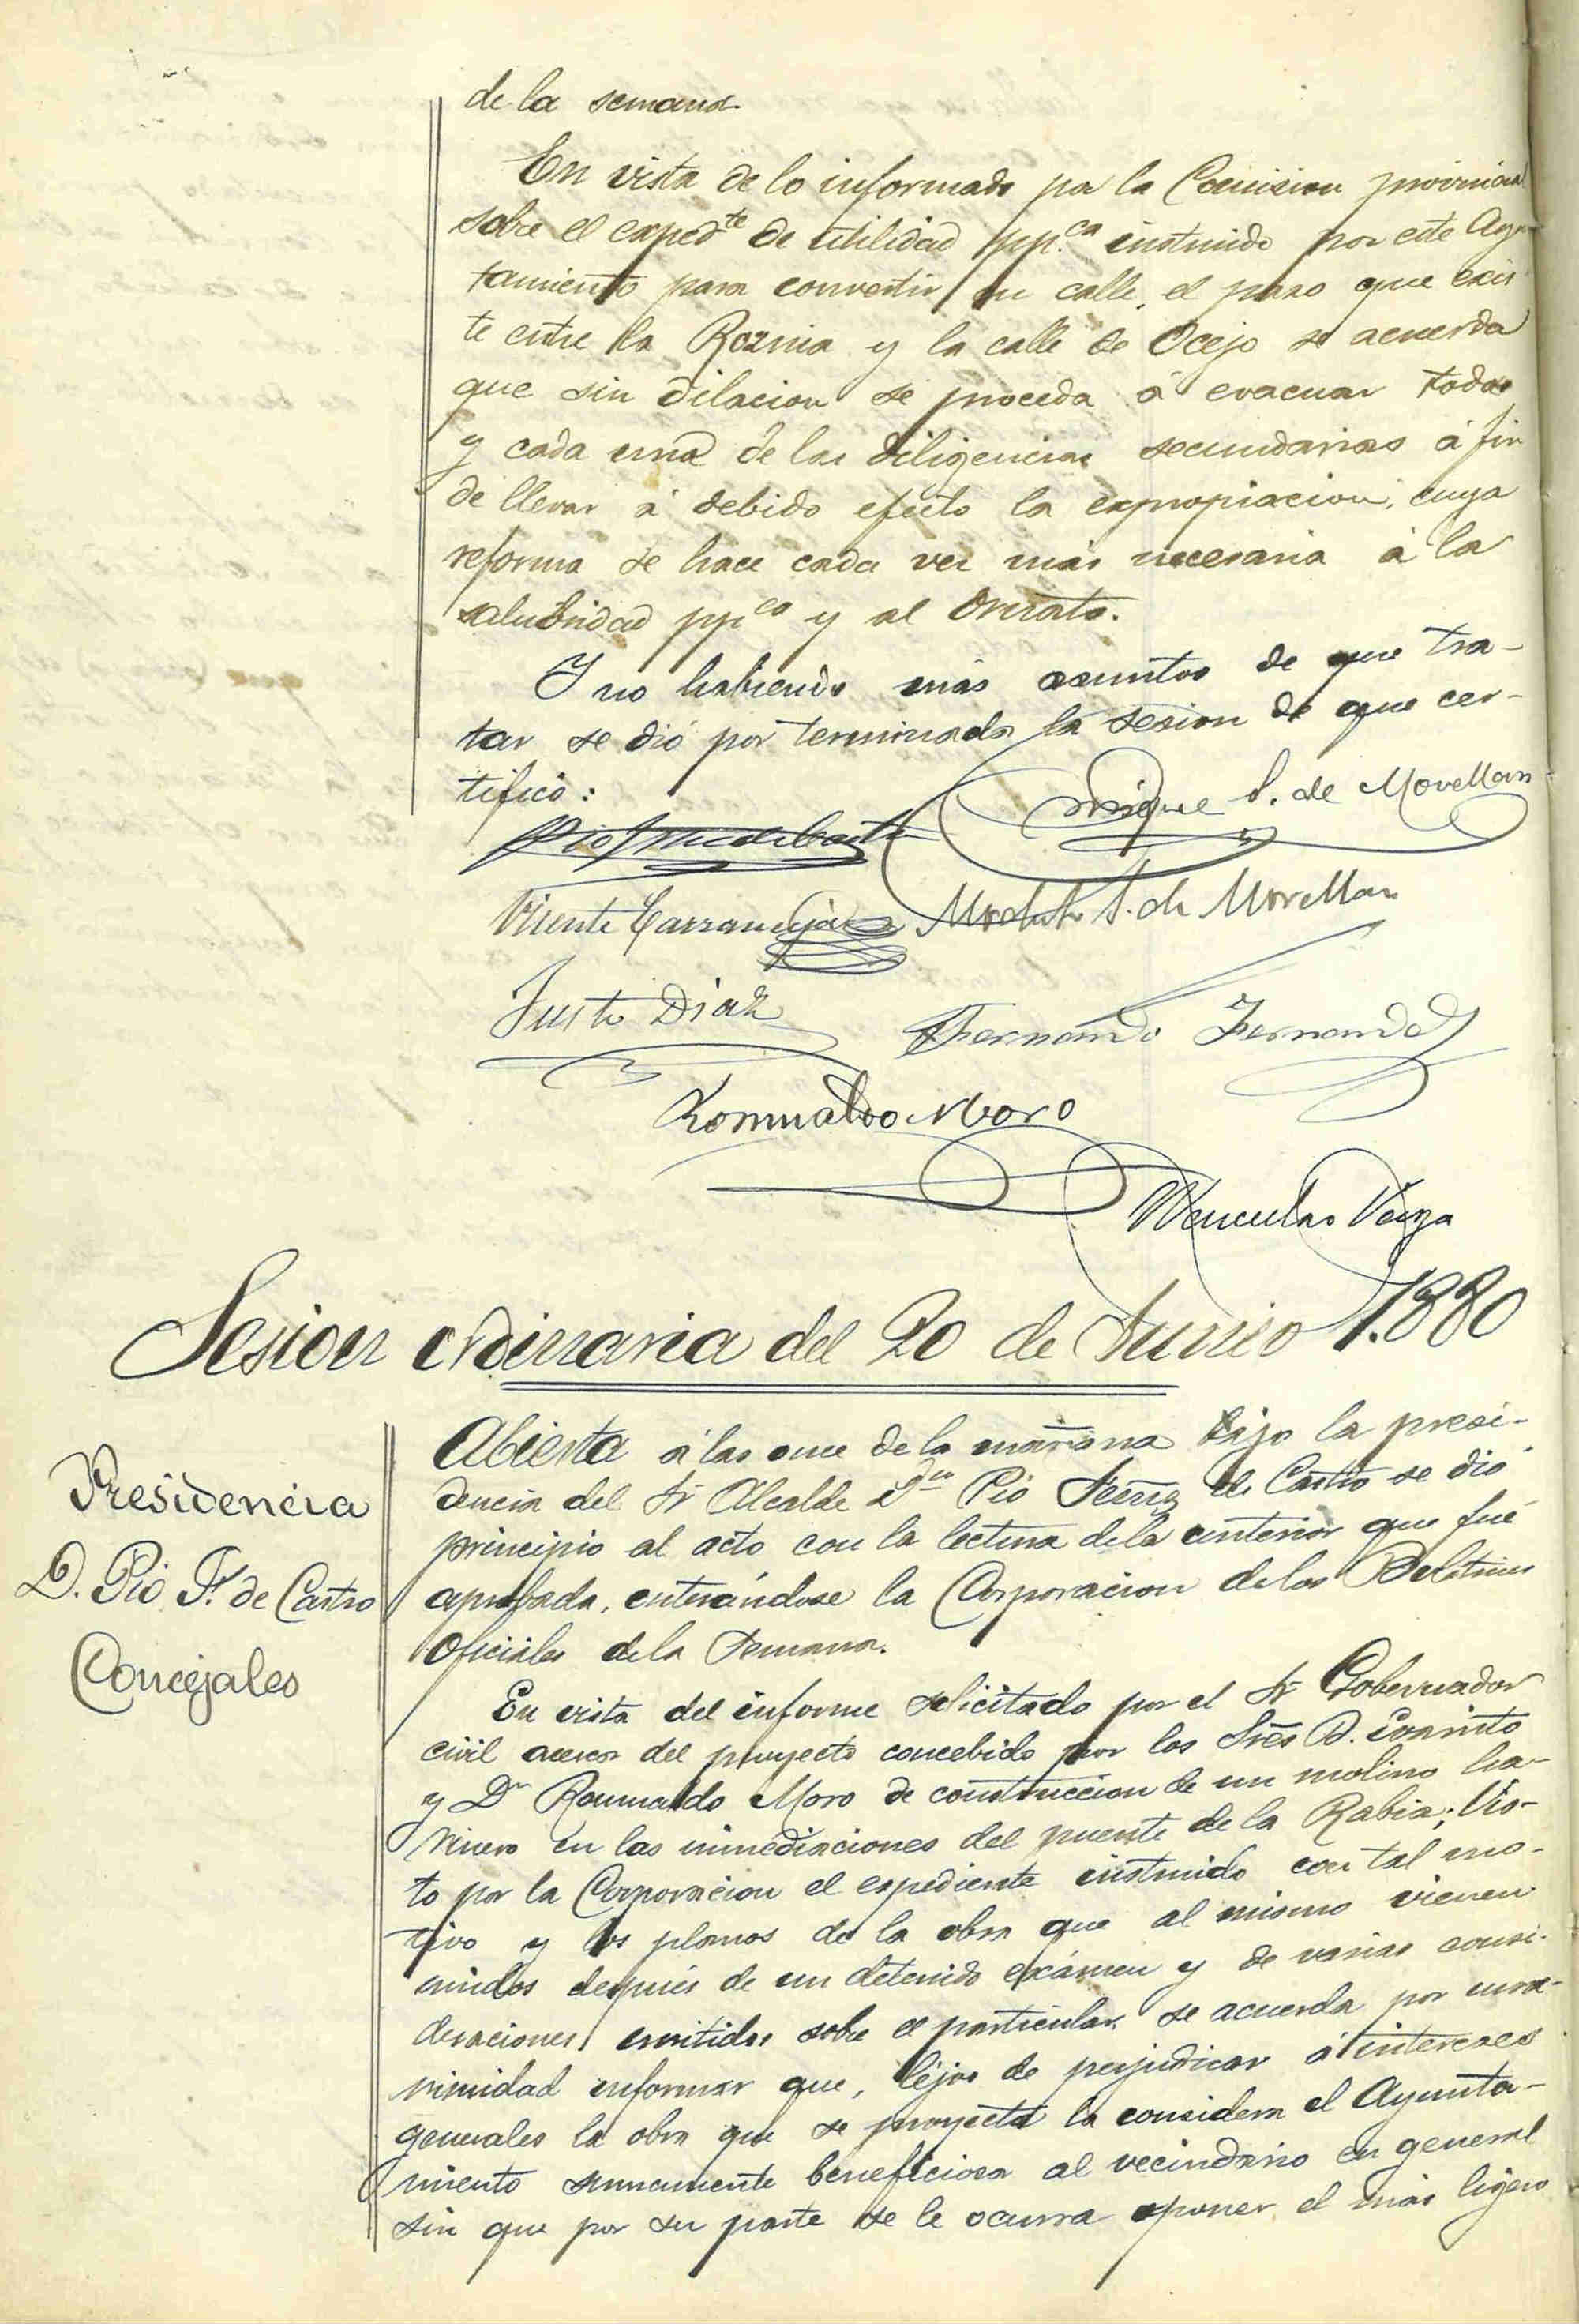 de la semana.
En vista de lo informado por la Comision provincial
sobre el exped.te de utilidad pp.ca instruido por este Ayun
tamiento para convertir en calle, el paso que exis
te entre la Roznia y la calle de Ocejo se acuerda
que sin dilacion se proceda á evacuar todas
y cada una de las diligencias secundarias á fin
de llevar á debido efecto la expropiacion, cuya
reforma se hace cada vez más necesaria á la
salubridad pp.ca y al Ornato.
Y no habiendo más asuntos de que tra-
tar se dió por terminada la sesion de que cer-
tifico:
Miguel S. de Movellan
Vicente Carranceja
Modesto S. de Movellan
Justo Diaz
Fernando Fernandez
Romualdo Moro
Wenceslao Veiga
Sesion ordinaria del 20 de Junio 1.880
Presidencia
D. Pio F. de Castro
Concejales
Abierta á las once de la mañana bajo la presi-
dencia del Sr Alcalde Dn Pio Fernz de Castro se dió
principio al acto con la lectura de la anterior que fué
aprobada, enterándose la Corporacion de los Boletines
Oficiales de la Semana.
En vista del informe solicitado por el Sr Gobernador
civil acerca del proyecto concebido por los Sres D. Corinto
y Dn Romualdo Moro de construccion de un molino ha-
rinero en las inmediaciones del puente de la Rabia; Vis-
to por la Corporacion el expediente instruido con tal mo-
tivo y los planos de la obra que al mismo vienen
unidos después de un detenido exámen y de varias consi-
deraciones emitidas sobre el particular se acuerda por una-
nimidad informar que, léjos de perjudicar á intereses
generales la obra que se proyecta la considera el Ayunta-
miento sumamente beneficiosa al vecindario en general
sin que por su parte se le ocurra oponer el más ligero